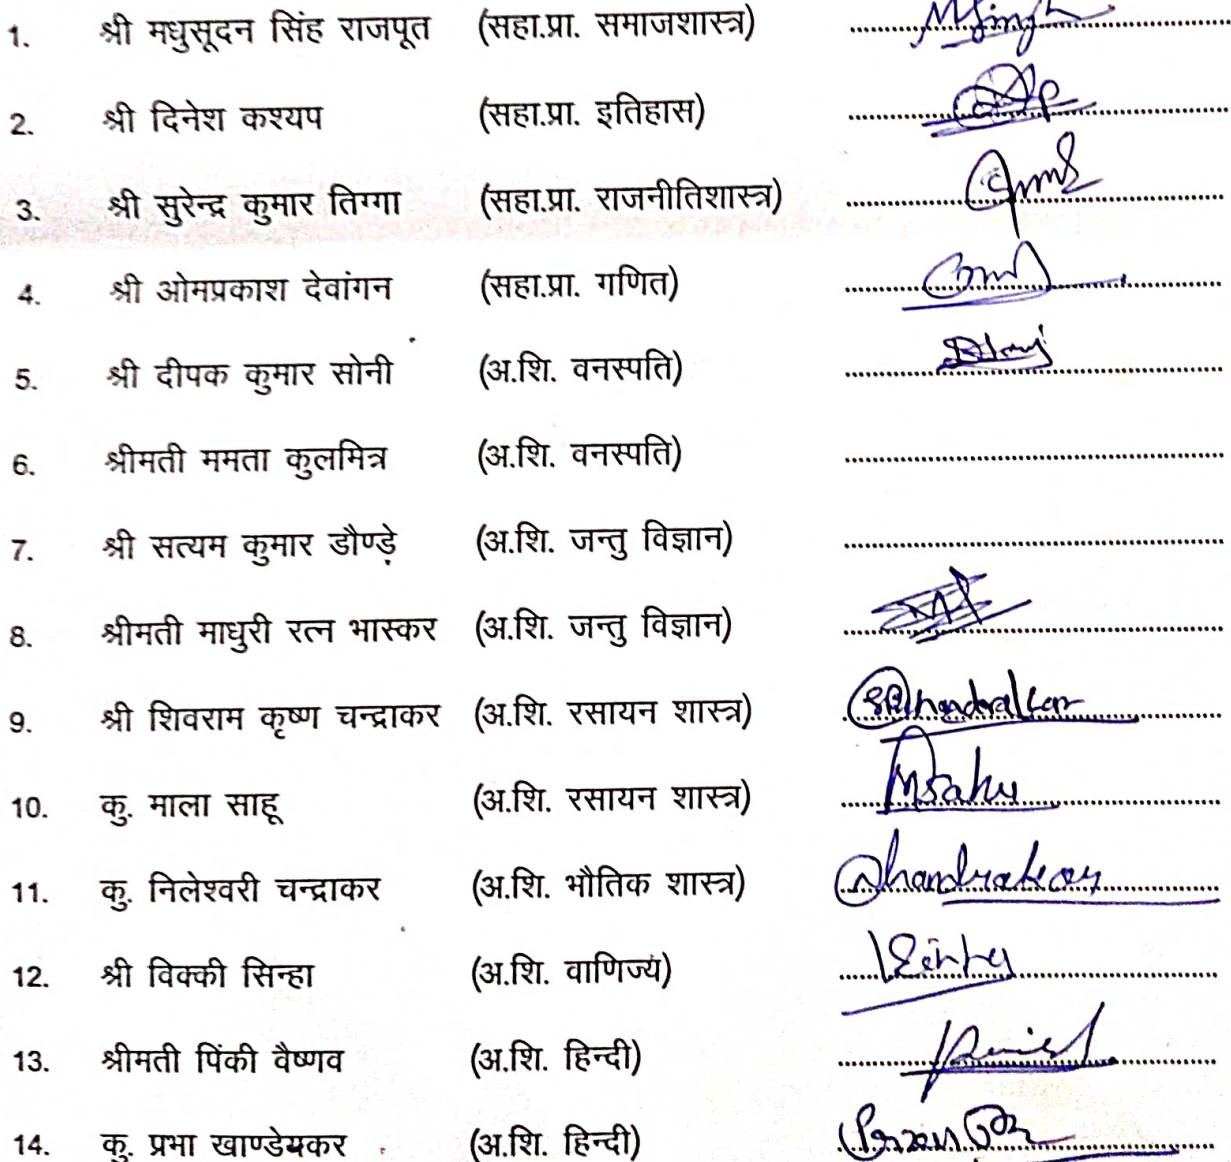 1. श्री मधुसूदन सिंह राजपूत (सहा.प्रा. समाजशास्त्र) MSingh
2. श्री दिनेश कश्यप (सहा.प्रा. इतिहास)
3. श्री सुरेन्द्र कुमार तिग्गा (सहा.प्रा. राजनीतिशास्त्र)
4. श्री ओमप्रकाश देवांगन (सहा.प्रा. गणित)
5. श्री दीपक कुमार सोनी (अ.शि. वनस्पति)
6. श्रीमती ममता कुलमित्र (अ.शि. वनस्पति)
7. श्री सत्यम कुमार डौण्ड़े (अ.शि. जन्तु विज्ञान)
8. श्रीमती माधुरी रत्न भास्कर (अ.शि. जन्तु विज्ञान)
9. श्री शिवराम कृष्ण चन्द्राकर (अ.शि. रसायन शास्त्र)
10. कु. माला साहू (अ.शि. रसायन शास्त्र) MSahu
11. कु. निलेश्वरी चन्द्राकर (अ.शि. भौतिक शास्त्र)
12. श्री विक्की सिन्हा (अ.शि. वाणिज्य)
13. श्रीमती पिंकी वैष्णव (अ.शि. हिन्दी)
14. कु. प्रभा खाण्डेयकर (अ.शि. हिन्दी)